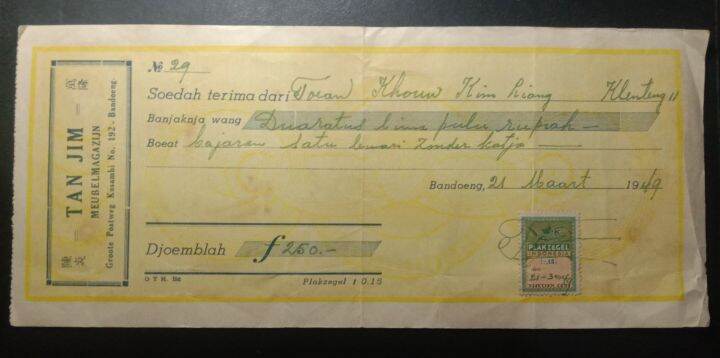 萬隆
TAN JIM
MEUBELMAGAZIJN
Groote Postweg Kosambi No. 192 - Bandoeng.
陳炎
№ 29
Soedah terima dari Toean Khouw Kim Kiang Klenteng 11
Banjaknja wang Duaratus lima pulu rupiah —
Boeat bajaran satu lemari zonder katja —
Bandoeng, 21 Maart 1949
Djoemblah f 250.-
O T H. Bd
Plakzegel f 0.15
PLAKZEGEL
INDONESIA
21-3-49